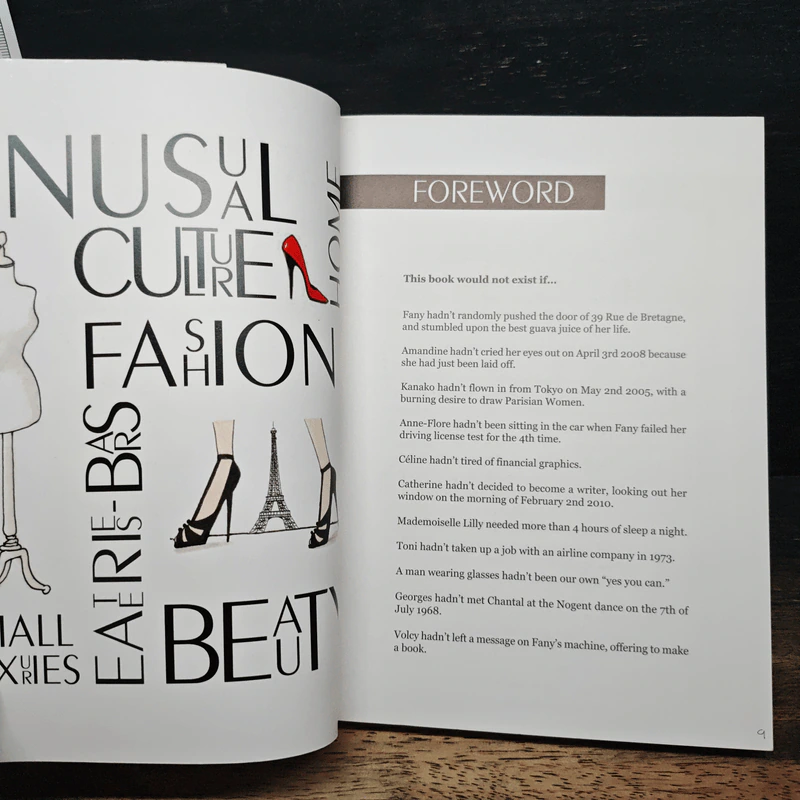 NUSUAL
CULTURE
HOME
FASHION
EATERIES-BARS
BEAUTY
FOREWORD
This book would not exist if...
Fany hadn't randomly pushed the door of 39 Rue de Bretagne,
and stumbled upon the best guava juice of her life.
Amandine hadn't cried her eyes out on April 3rd 2008 because
she had just been laid off.
Kanako hadn't flown in from Tokyo on May 2nd 2005, with a
burning desire to draw Parisian Women.
Anne-Flore hadn't been sitting in the car when Fany failed her
driving license test for the 4th time.
Céline hadn't tired of financial graphics.
Catherine hadn't decided to become a writer, looking out her
window on the morning of February 2nd 2010.
Mademoiselle Lilly needed more than 4 hours of sleep a night.
Toni hadn't taken up a job with an airline company in 1973.
A man wearing glasses hadn't been our own "yes you can."
Georges hadn't met Chantal at the Nogent dance on the 7th of
July 1968.
Volcy hadn't left a message on Fany's machine, offering to make
a book.
9